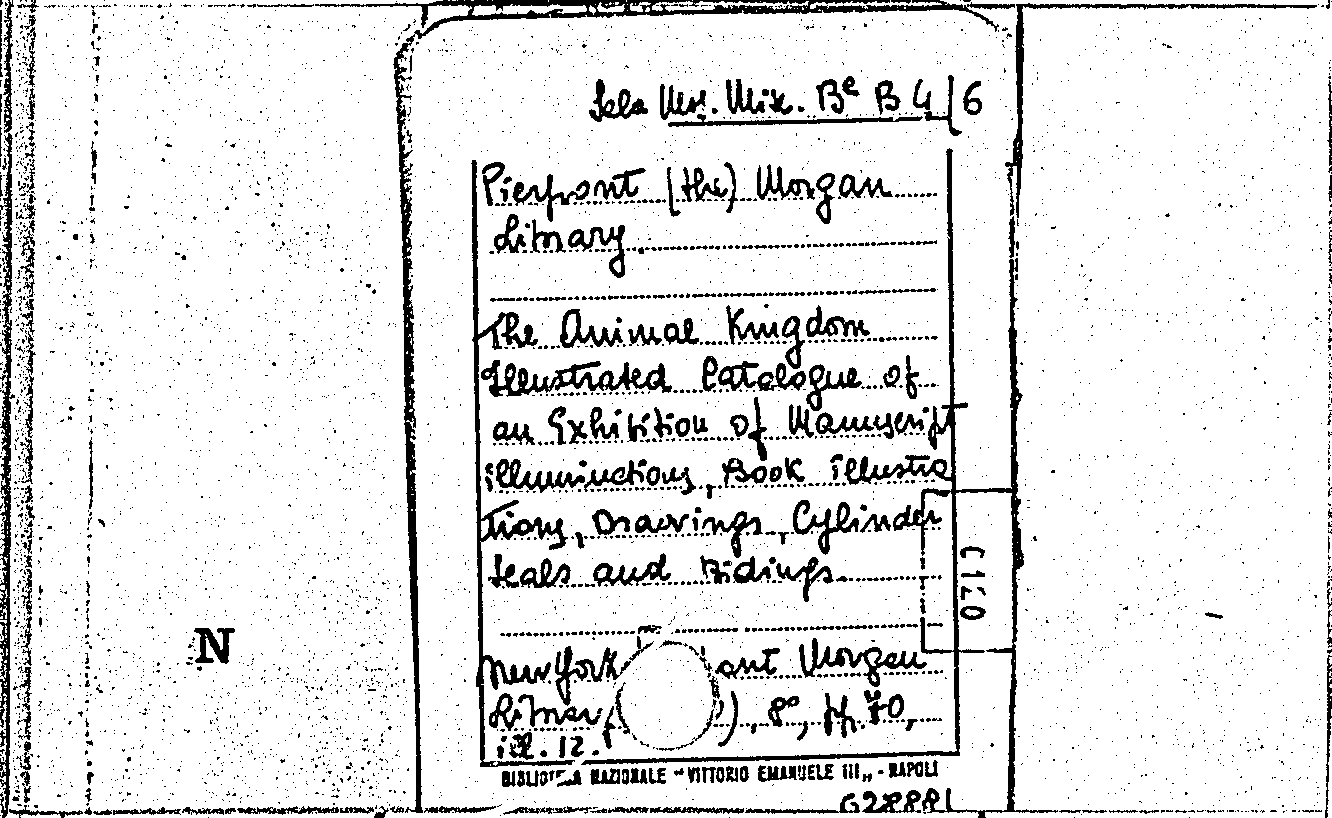 Sala Ms. Mix. Be B 4/6
Pierpont (the) Morgan
Library.
The Animal Kingdom
Illustrated Catalogue of
an Exhibition of Manuscript
illuminations, Book illustra
tions, Drawings, Cylinder
Seals and Bidings.
0110
N
New York ont Morgan
Library ), 8°, pp. 70,
ill. 12.
BIBLIOTECA NAZIONALE "VITTORIO EMANUELE III„ - NAPOLI
628881